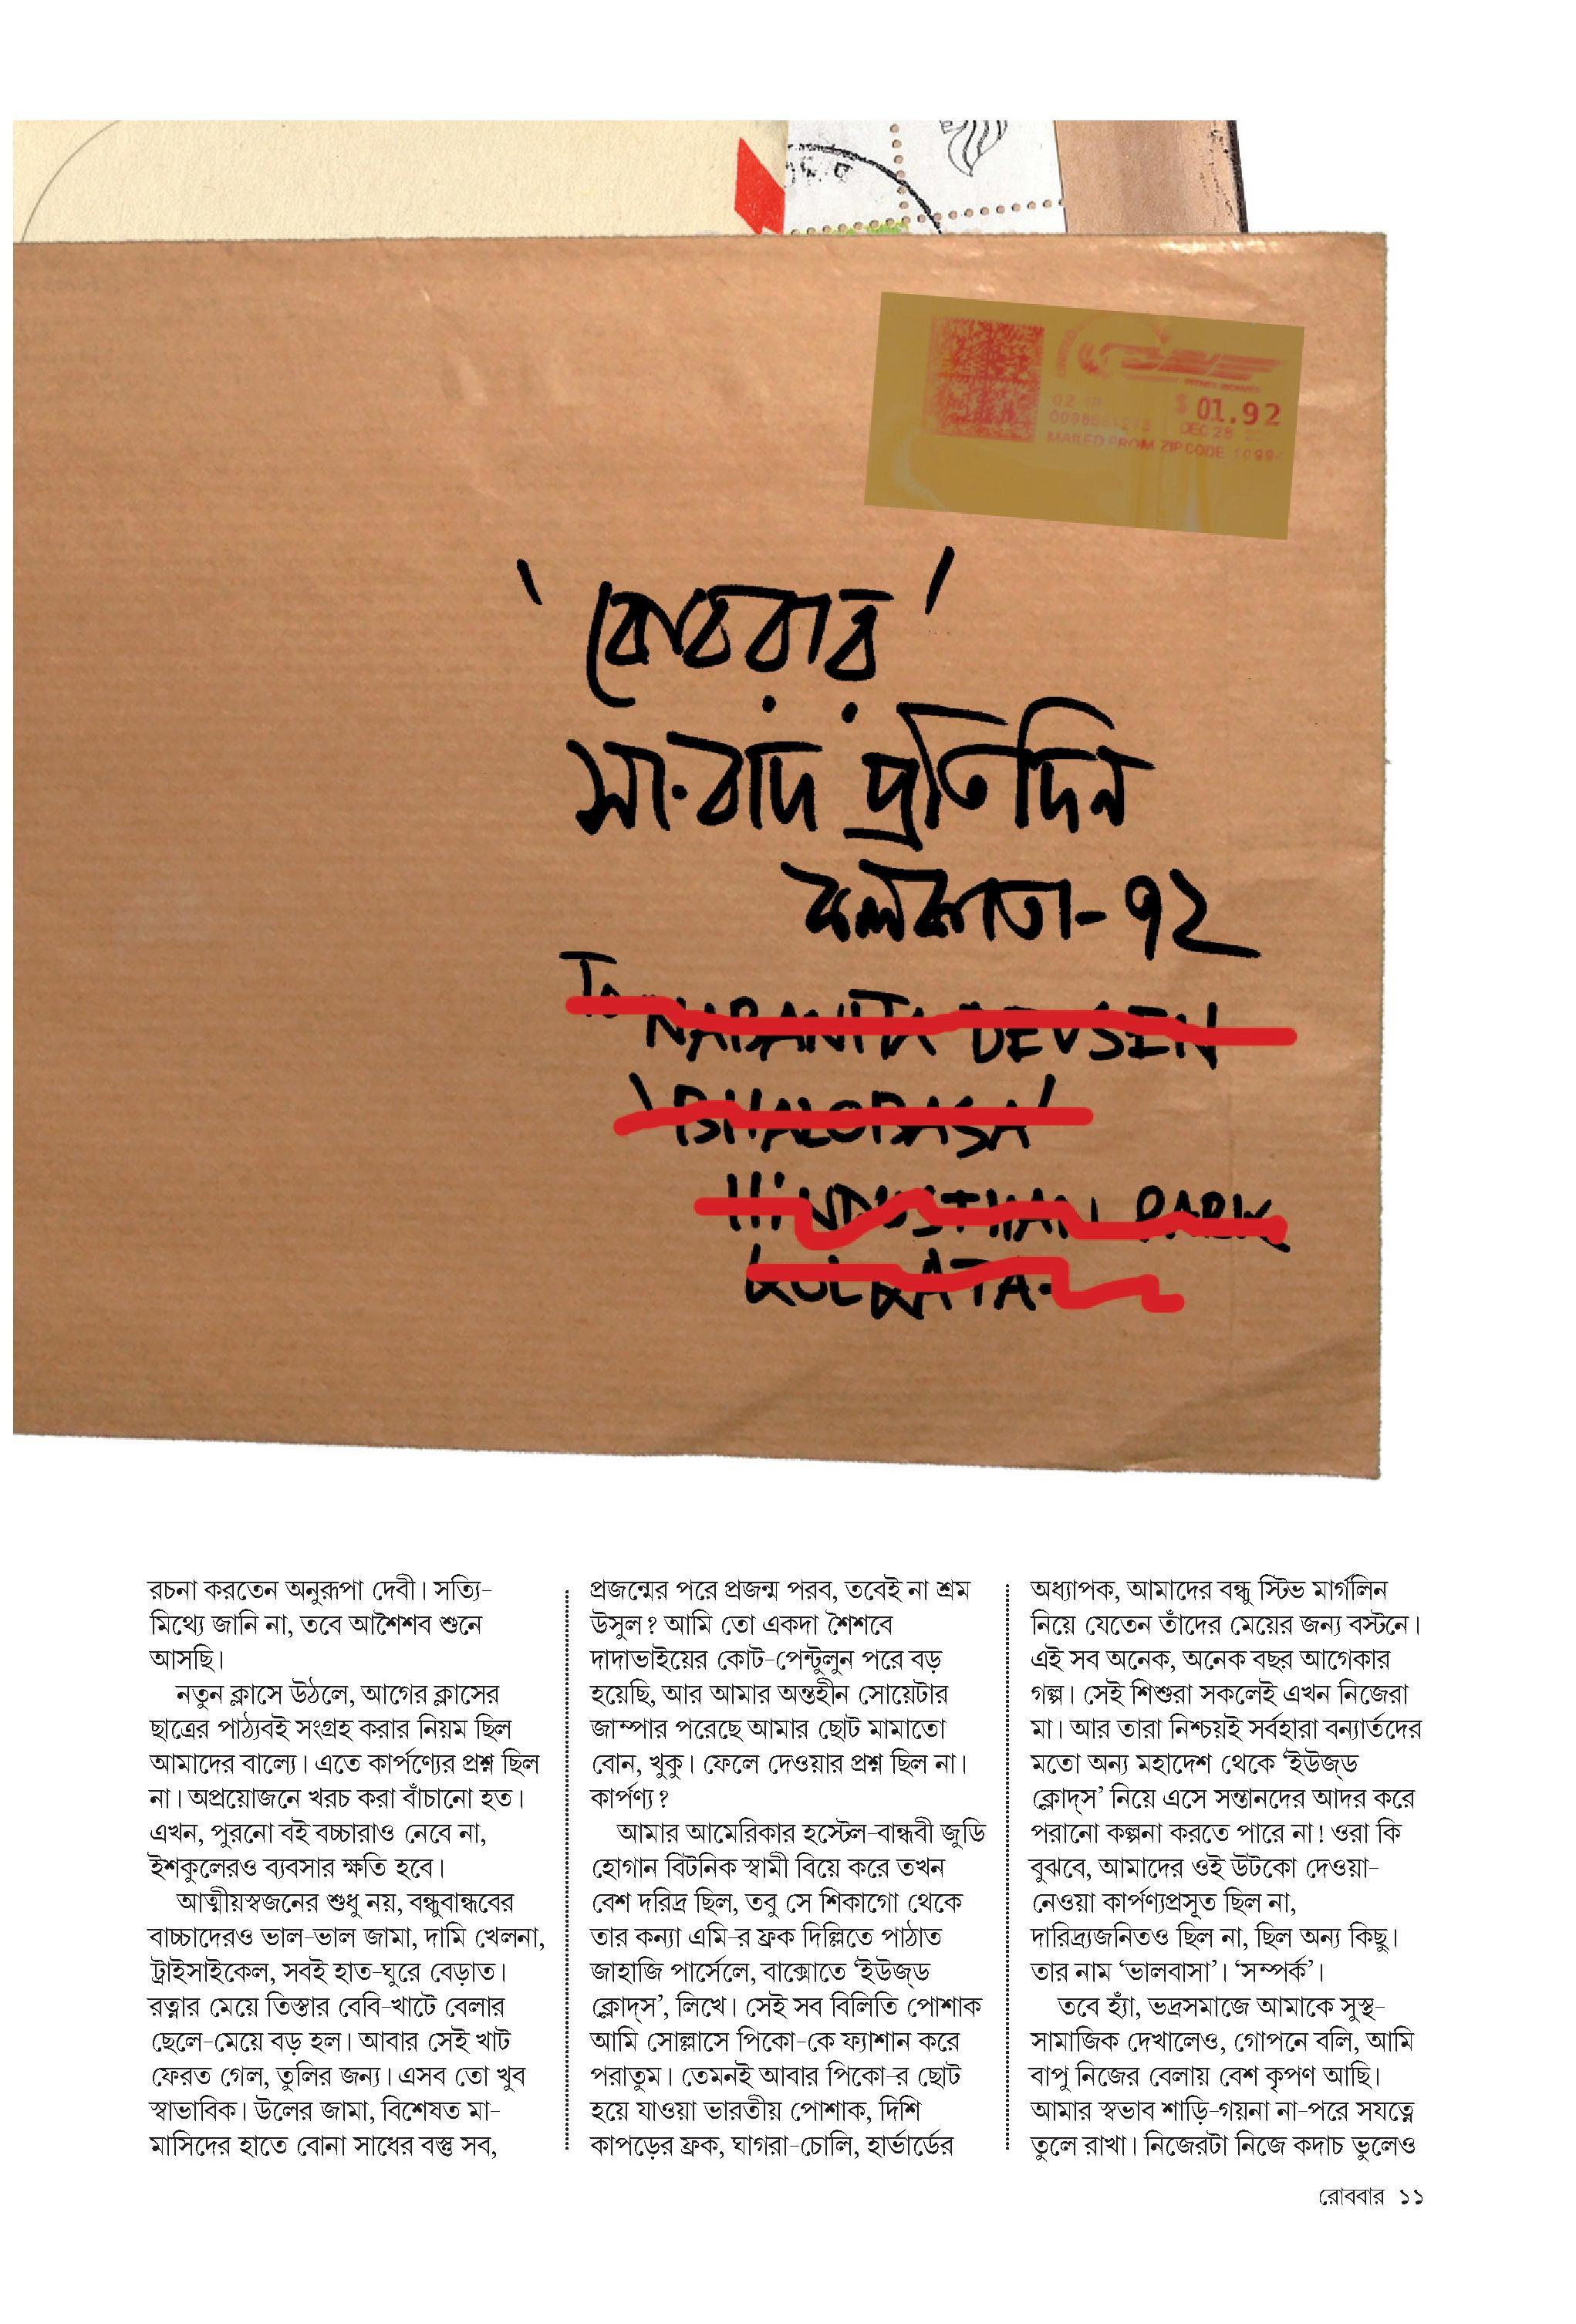 $ 01.92
DEC 28
MAILED FROM ZIP CODE
'রোববার'
সংবাদ প্রতিদিন
কলকাতা-৭২
To
NABANITA DEVSEN
'BHALOBASA'
HINDUSTHAN PARK
KOLKATA.
রচনা করতেন অনুরূপা দেবী। সত্যি-
মিথ্যে জানি না, তবে আশৈশব শুনে
আসছি।
নতুন ক্লাসে উঠলে, আগের ক্লাসের
ছাত্রের পাঠ্যবই সংগ্রহ করার নিয়ম ছিল
আমাদের বাল্যে। এতে কার্পণ্যের প্রশ্ন ছিল
না। অপ্রয়োজনে খরচ করা বাঁচানো হত।
এখন, পুরনো বই বচ্চারাও নেবে না,
ইশকুলেরও ব্যবসার ক্ষতি হবে।
আত্মীয়স্বজনের শুধু নয়, বন্ধুবান্ধবের
বাচ্চাদেরও ভাল-ভাল জামা, দামি খেলনা,
ট্রাইসাইকেল, সবই হাত-ঘুরে বেড়াত।
রত্নার মেয়ে তিস্তার বেবি-খাটে বেলার
ছেলে-মেয়ে বড় হল। আবার সেই খাট
ফেরত গেল, তুলির জন্য। এসব তো খুব
স্বাভাবিক। উলের জামা, বিশেষত মা-
মাসিদের হাতে বোনা সাধের বস্তু সব,
প্রজন্মের পরে প্রজন্ম পরব, তবেই না শ্রম
উসুল? আমি তো একদা শৈশবে
দাদাভাইয়ের কোট-পেন্টুলুন পরে বড়
হয়েছি, আর আমার অন্তহীন সোয়েটার
জাম্পার পরেছে আমার ছোট মামাতো
বোন, খুকু। ফেলে দেওয়ার প্রশ্ন ছিল না।
কার্পণ্য?
আমার আমেরিকার হস্টেল-বান্ধবী জুডি
হোগান বিটনিক স্বামী বিয়ে করে তখন
বেশ দরিদ্র ছিল, তবু সে শিকাগো থেকে
তার কন্যা এমি-র ফ্রক দিল্লিতে পাঠাত
জাহাজি পার্সেলে, বাক্সোতে 'ইউজ্‌ড
ক্লোদ্‌স', লিখে। সেই সব বিলিতি পোশাক
আমি সোল্লাসে পিকো-কে ফ্যাশান করে
পরাতুম। তেমনই আবার পিকো-র ছোট
হয়ে যাওয়া ভারতীয় পোশাক, দিশি
কাপড়ের ফ্রক, ঘাগরা-চোলি, হার্ভার্ডের
অধ্যাপক, আমাদের বন্ধু স্টিভ মার্গলিন
নিয়ে যেতেন তাঁদের মেয়ের জন্য বস্টনে।
এই সব অনেক, অনেক বছর আগেকার
গল্প। সেই শিশুরা সকলেই এখন নিজেরা
মা। আর তারা নিশ্চয়ই সর্বহারা বন্যার্তদের
মতো অন্য মহাদেশ থেকে 'ইউজ্‌ড
ক্লোদ্‌স' নিয়ে এসে সন্তানদের আদর করে
পরানো কল্পনা করতে পারে না! ওরা কি
বুঝবে, আমাদের ওই উটকো দেওয়া-
নেওয়া কার্পণ্যপ্রসূত ছিল না,
দারিদ্র্যজনিতও ছিল না, ছিল অন্য কিছু।
তার নাম 'ভালবাসা'। 'সম্পর্ক'।
তবে হ্যাঁ, ভদ্রসমাজে আমাকে সুস্থ-
সামাজিক দেখালেও, গোপনে বলি, আমি
বাপু নিজের বেলায় বেশ কৃপণ আছি।
আমার স্বভাব শাড়ি-গয়না না-পরে সযত্নে
তুলে রাখা। নিজেরটা নিজে কদাচ ভুলেও
রোববার ১১